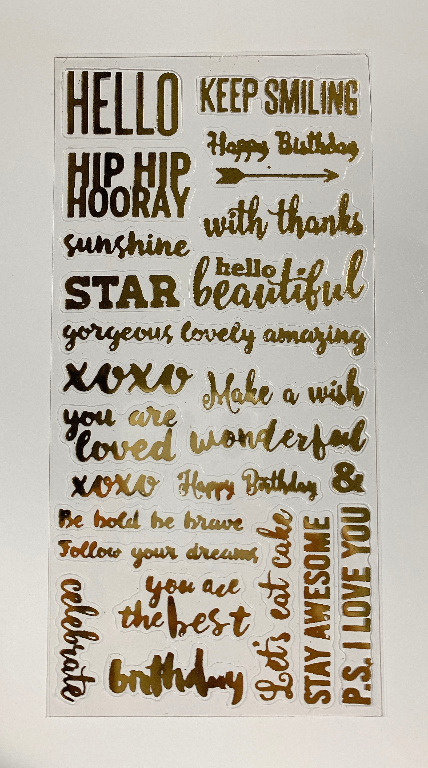 HELLO
KEEP SMILING
Happy Birthday
HIP HIP
HOORAY
with thanks
sunshine
hello
beautiful
STAR
gorgeous lovely amazing
xoxo
Make a wish
you are
loved
wonderful
xoxo
Happy Birthday
&
Be bold be brave
Follow your dreams
celebrate
you are
the best
birthday
Let's eat cake
STAY AWESOME
P.S. I LOVE YOU